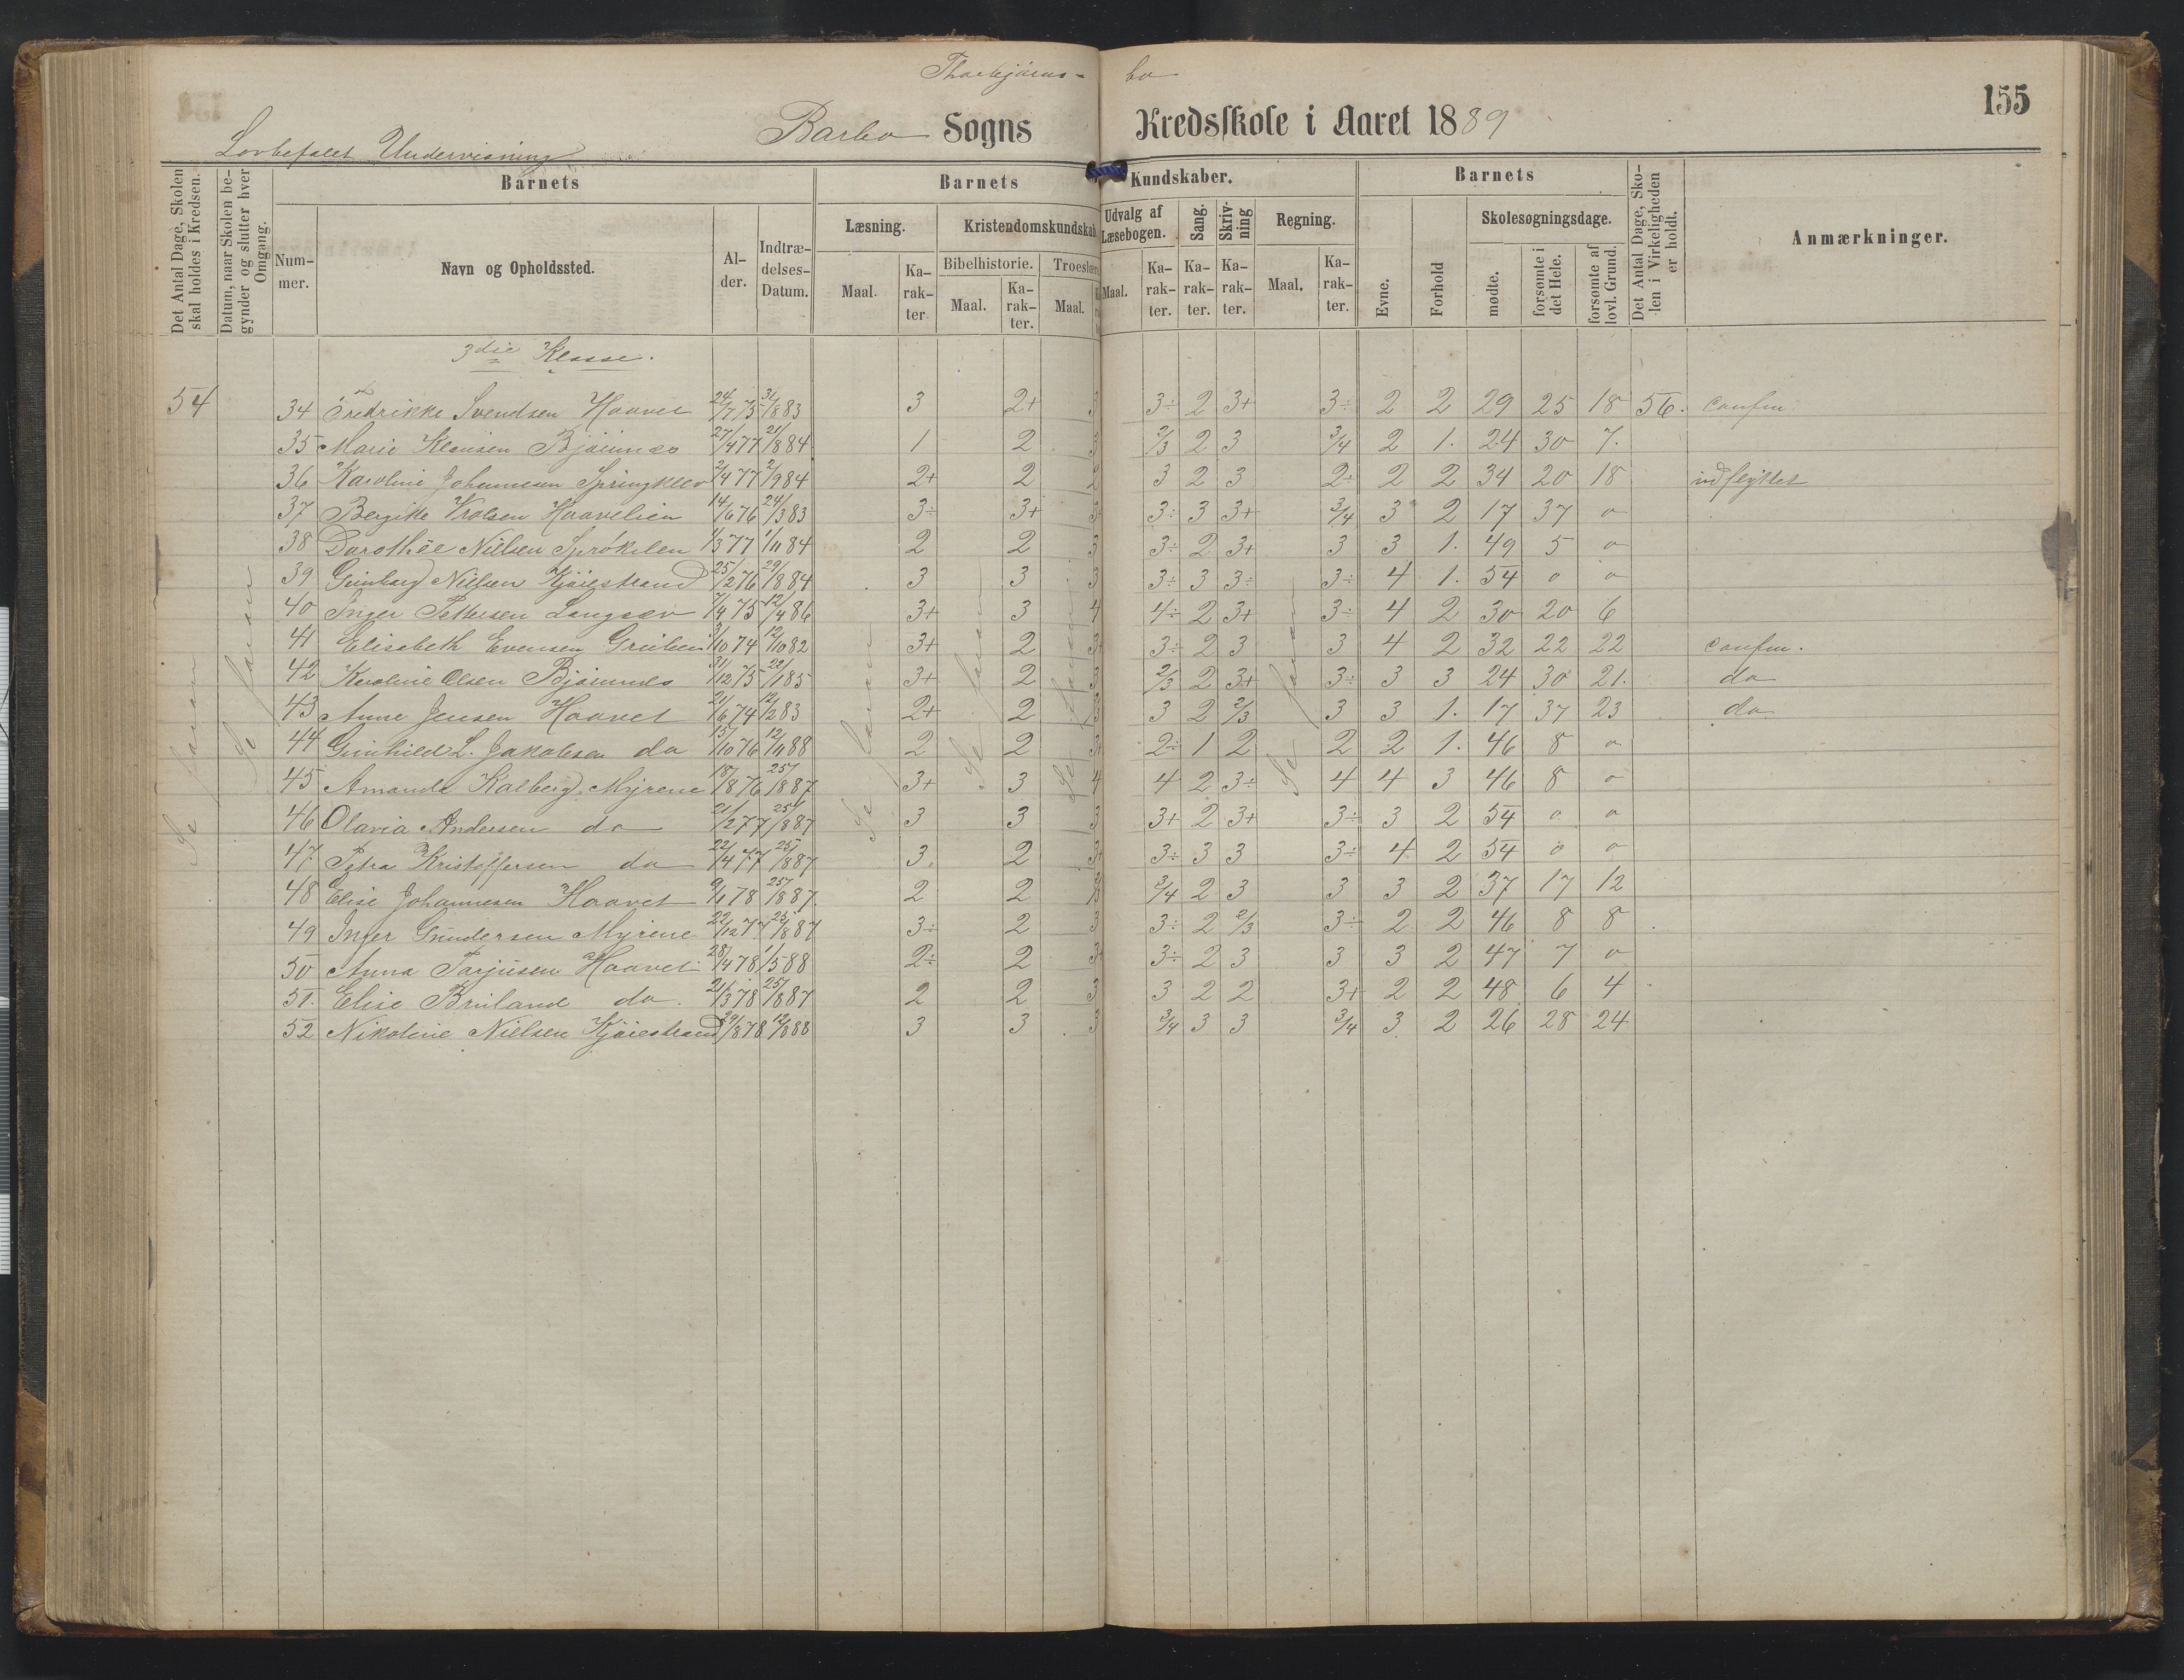 Thorbjørns- bo
155
Barbo Sogns Kredsskole i Aaret 1889
Lovbefalet Undervisning
Det Antal Dage, Skolen skal holdes i Kredsen.
Datum, naar Skolen begynder og slutter hver Omgang.
Barnets
Nummer.
Navn og Opholdssted.
Alder.
Indtrædelses-Datum.
Barnets Kundskaber.
Læsning.
Maal.
Karakter
Kristendomskundskab
Bibelhistorie.
Maal.
Karakter.
Troeslære
Maal.
Udvalg af Læsebogen.
Maal.
Karakter.
Sang.
Karakter.
Skrivning
Karakter.
Regning.
Maal.
Karakter.
Barnets
Evne.
Forhold
Skolesøgningsdage.
mødte.
forsømte i det Hele.
forsømte af lovl. Grund.
Det Antal Dage, Skolen i Virkeligheden er holdt.
Anmærkninger.
3die Klasse.
54 34 Fredrikke Svendsen Haavet 24/7 75 /883 3 2+ 3 3÷ 2 3+ 3÷ 2 2 29 25 18 56. confm.
35 Marie Klausen Bjørnnes 27/4 77 21/884 1 2 3 2/3 2 3 3/4 2 1. 24 30 7.
36 Karoline Johannesen Springklev 2/4 77 2/984 2+ 2 2 3 2 3 2÷ 2 2 34 20 18 udflyttet
37 Bergitte Vrolsen Haavelien 14/6 76 24/383 3÷ 3+ 3÷ 3÷ 3 3+ 3/4 3 2 17 37 0
38 Dorothëe Nilsen Sprøkilen 1/3 77 1/1184 2 2 3 3÷ 2 3+ 3 3 1. 49 5 0
39 Gunborg Nielsen Kjøiestrand 25/2 76 29/884 3 3 3 3÷ 3 3÷ 3÷ 4 1. 54 0 0
40 Inger Pettersen Langsæv 7/4 75 12/486 3+ 3 4 4÷ 2 3+ 3÷ 4 2 30 20 6
41 Elisabeth Evensen 3/10 74 12/1082 3+ 2 3+ 3÷ 2 3 3 4 2 32 22 22 confm.
42 Karoline Olsen Bjørnnes 31/12 75 22/185 3+ 2 3 2/3 2 3+ 3÷ 3 3 24 30 21. do
43 Anne Jensen Haavet 21/6 74 12/283 2+ 2 3 3 2 2/3 3 3 1. 17 37 23 do
44 Gunhild L. Jakobsen do 15/10 76 12/1188 2 2 3+ 2÷ 1 2 2 2 1. 46 8 0
45 Amanda Kalberg Myrene 18/8 76 25/887 3+ 3 4 4 2 3÷ 4 4 3 46 8 0
46 Olavia Andersen do 21/2 77 25/887 3 3 3 3+ 2 3+ 3÷ 3 2 54 0 0
47. Petra Kristoffersen do 22/4 77 25/887 3. 2 3+ 3÷ 3 3 3÷ 4 2 54 0 0
48 Elise Johannesen Haavet 9/1 78 25/887. 2 2 3/4 2 3 3 3 2 37 17 12
49 Inger Gundersen Myrene 22/12 77 25/887 3÷ 2 3 3÷ 2 2/3 3÷ 2 2 46 8 8
50 Anna Tarjusen Haavet 28/4 78 1/588 2÷ 2 3+ 3÷ 2 3 3 3 2 47 7 0
51. Elise Bruland do. 21/3 78 25/887 2 2 3 3 2 2 3+ 2 2 48 6 4
52 Nikoline Nielsen Kjøiestrand 29/8 78 12/888 3 3 3 3/4 3 3 3/4 3 2 26 28 24
Se foran
Se foran
Se foran
Se foran
Se foran
Se foran